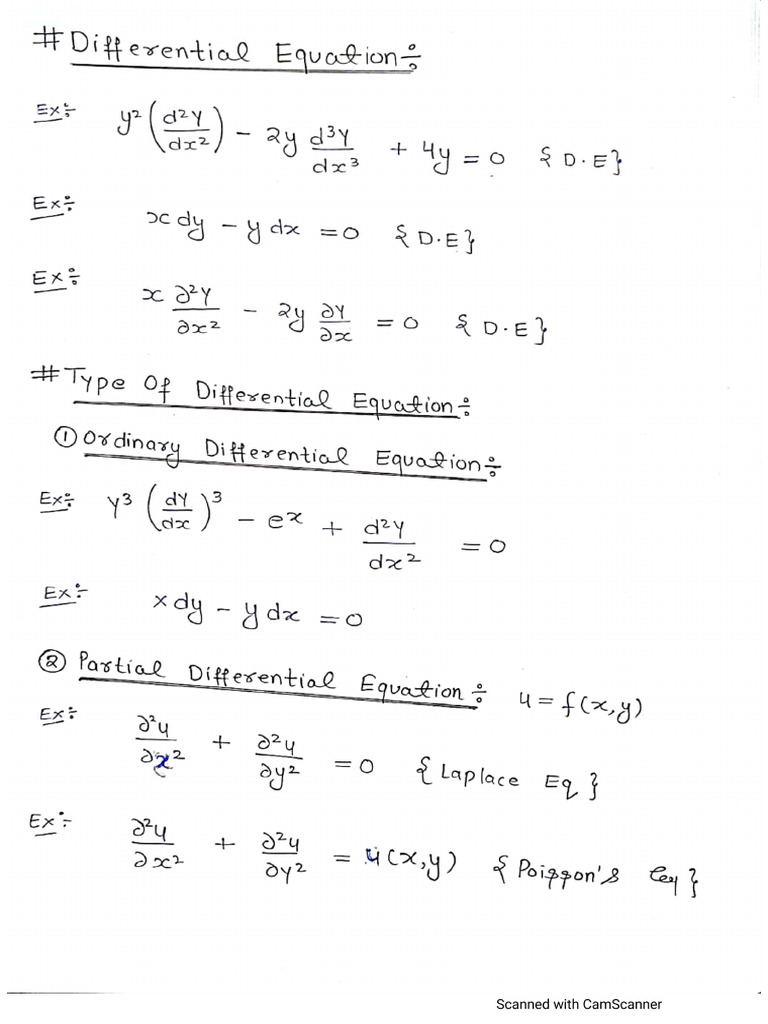 # Differential Equation÷
Ex÷ y² (d²y/dx²) - 2y d³y/dx³ + 4y = 0 { D.E }
Ex÷ x dy - y dx = 0 { D.E }
Ex÷ x ∂²y/∂x² - 2y ∂y/∂x = 0 { D.E }
# Type Of Differential Equation÷
① Ordinary Differential Equation÷
Ex÷ y³ (dy/dx)³ - eˣ + d²y/dx² = 0
Ex÷ x dy - y dx = 0
② Partial Differential Equation÷ u = f(x,y)
Ex÷ ∂²u/∂x² + ∂²u/∂y² = 0 { Laplace Eq }
Ex÷ ∂²u/∂x² + ∂²u/∂y² = u(x,y) { Poisson's Eq }
Scanned with CamScanner